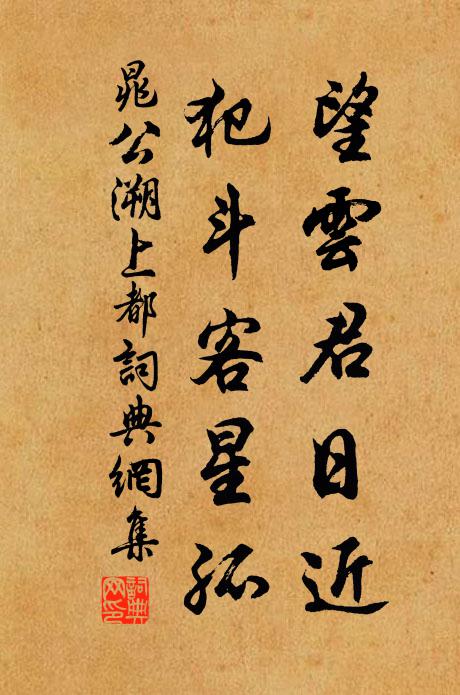 望雲君日近
犯斗客星孤
晁公溯上都詞典網集
詞典網印